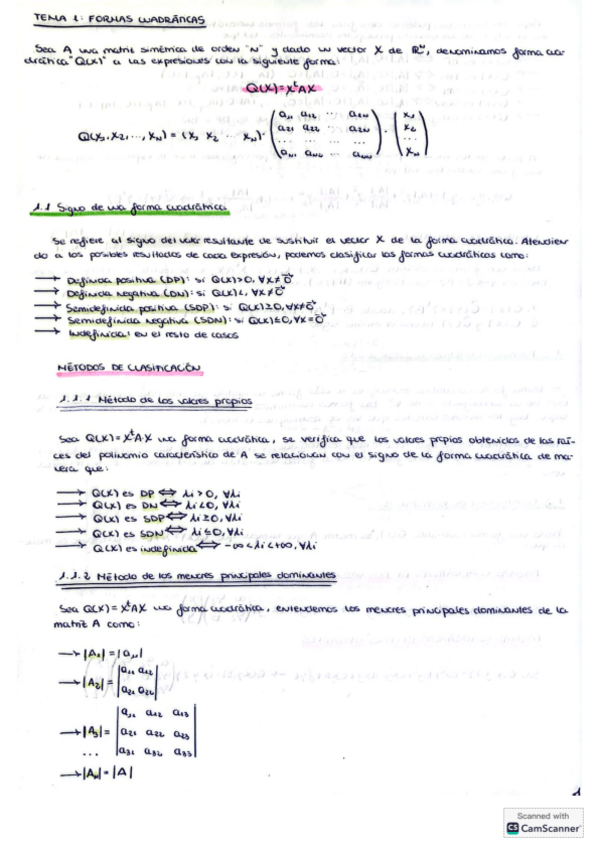 TEMA 1: FORMAS CUADRÁTICAS
Sea A una matriz simétrica de orden "N" y dado un vector X de ℝᴺ, denominamos forma cua-
drática "Q(X)" a las expresiones con la siguiente forma:
Q(X)=XᵗAX
Q(X₁, X₂, ..., Xₙ) = (X₁ X₂ ... Xₙ) · (a₁₁ a₁₂ ... a₁ₙ) · (X₁)
(a₂₁ a₂₂ ... a₂ₙ) (X₂)
(... ... ... ...) (...)
(aₙ₁ aₙ₂ ... aₙₙ) (Xₙ)
1.1 Signo de una forma cuadrática
Se refiere al signo del valor resultante de sustituir el vector X de la forma cuadrática. Atendien
do a los posibles resultados de cada expresión, podemos clasificar las formas cuadráticas como:
→ Definida positiva (DP): si Q(X)>0, ∀X≠0⃗
→ Definida negativa (DN): si Q(X)<, ∀X≠0⃗
→ Semidefinida positiva (SDP): si Q(X)≥0, ∀X≠0⃗
→ Semidefinida negativa (SDN): si Q(X)≤0, ∀X=0⃗
→ Indefinida: en el resto de casos
MÉTODOS DE CLASIFICACIÓN
1.1.1 Método de los valores propios
Sea Q(X)=XᵗAX una forma cuadrática, se verifica que los valores propios obtenidos de las raí-
ces del polinomio característico de A se relacionan con el signo de la forma cuadrática de ma-
nera que:
→ Q(X) es DP ⇔ λi>0, ∀λi
→ Q(X) es DN ⇔ λi<0, ∀λi
→ Q(X) es SDP ⇔ λi≥0, ∀λi
→ Q(X) es SDN ⇔ λi≤0, ∀λi
→ Q(X) es indefinida ⇔ -∞<λi<+∞, ∀λi
1.1.2 Método de los menores principales dominantes
Sea Q(X)=XᵗAX una forma cuadrática, entendemos los menores principales dominantes de la
matriz A como:
→ |A₁|=|a₁₁|
→ |A₂|= |a₁₁ a₁₂|
|a₂₁ a₂₂|
→ |A₃|= |a₁₁ a₁₂ a₁₃|
|a₂₁ a₂₂ a₂₃|
... |a₃₁ a₃₂ a₃₃|
→ |Aₙ|=|A|
1
Scanned with
CS CamScanner